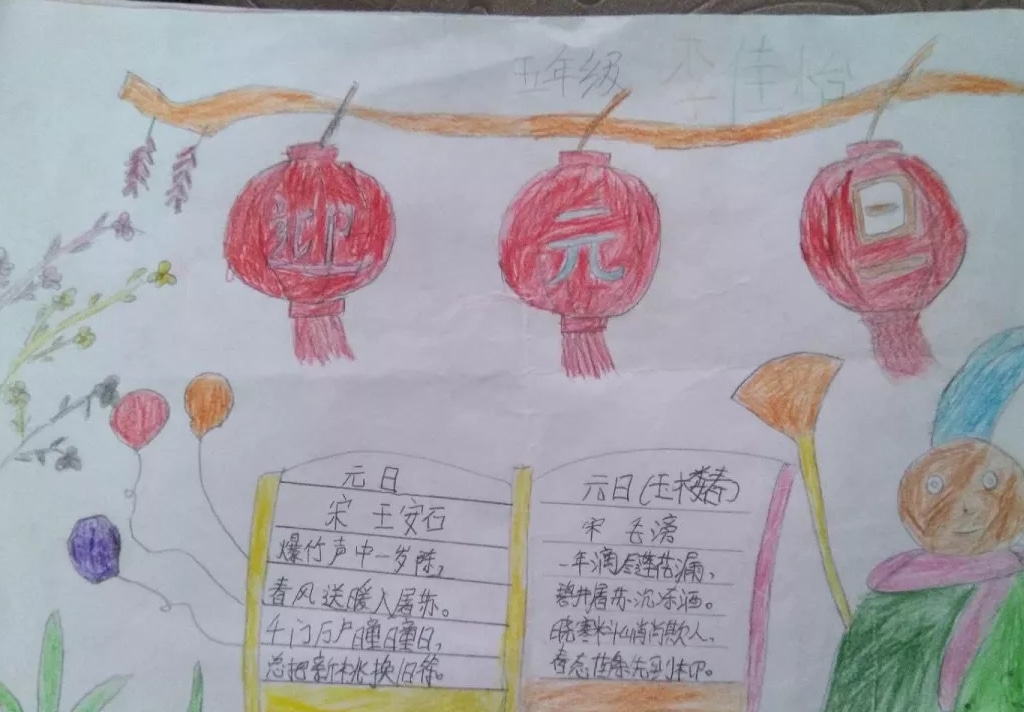 五年级 李佳怡
迎 元 旦
元日
宋 王安石
爆竹声中一岁除,
春风送暖入屠苏。
千门万户瞳瞳日,
总把新桃换旧符。
元日(玉楼春)
宋 毛滂
一年滴尽莲花漏,
碧井屠苏沉冻酒。
晓寒料峭尚欺人,
春态条先到柳。